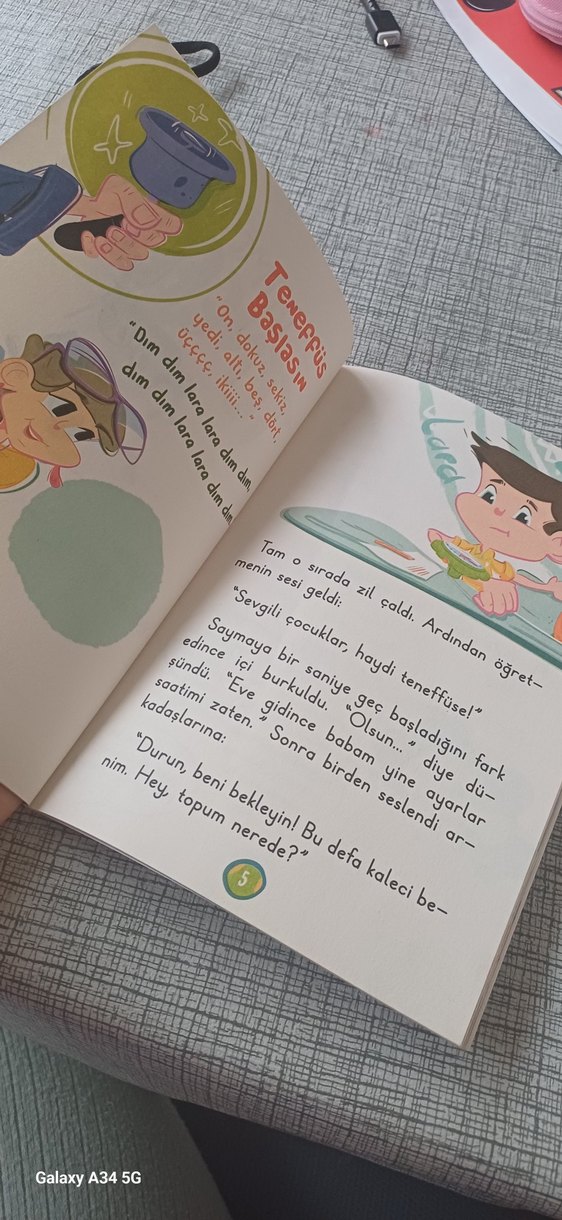 Teneffüs
Başlasın
"On, dokuz, sekiz,
yedi, altı, beş, dört,
üçççç, ikiii..."
"Dım dım lara lara dım dım,
dım dım lara lara dım dım
Lara
Tam o sırada zil çaldı. Ardından öğret-
menin sesi geldi:
"Sevgili çocuklar, haydi teneffüse!"
Saymaya bir saniye geç başladığını fark
edince içi burkuldu. "Olsun..." diye dü-
şündü. "Eve gidince babam yine ayarlar
saatimi zaten." Sonra birden seslendi ar-
kadaşlarına:
"Durun, beni bekleyin! Bu defa kaleci be-
nim. Hey, topum nerede?"
5
Galaxy A34 5G